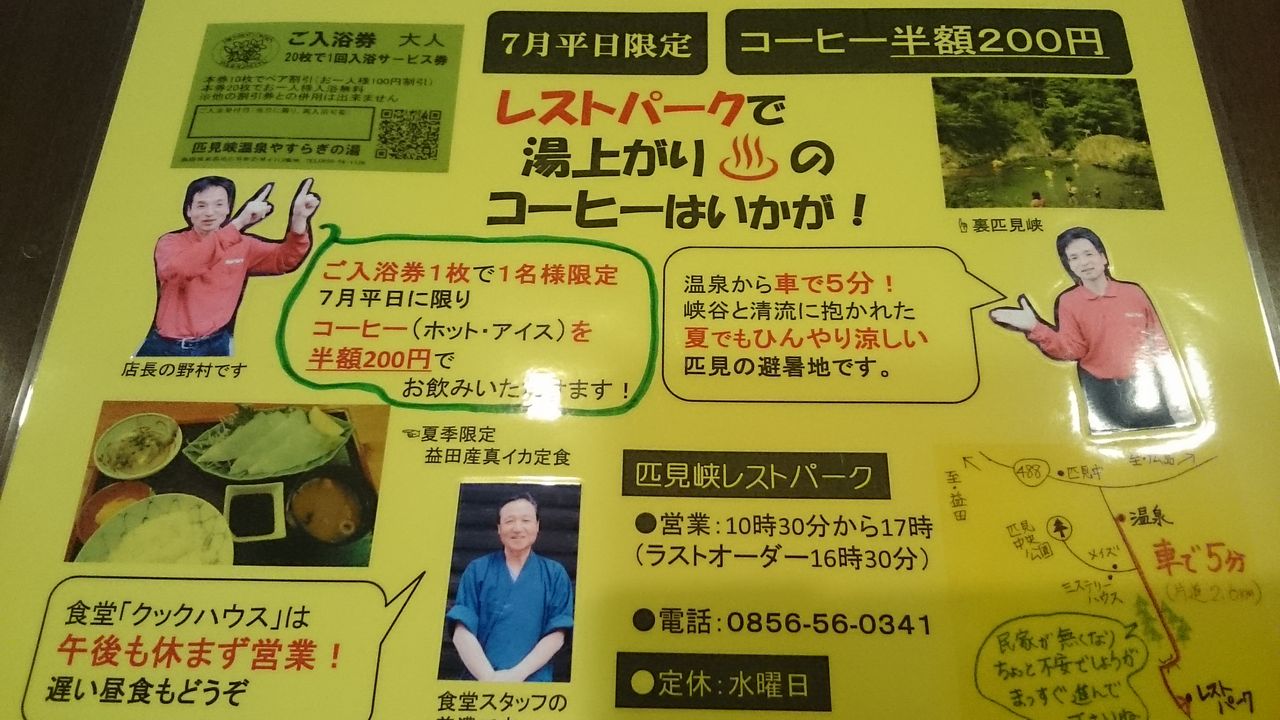 ご入浴券 大人
20枚で1回入浴サービス券
本券10枚でペア割引(お一人様100円割引)
本券20枚でお一人様入浴無料
※他の割引券との併用は出来ません
匹見峡温泉やすらぎの湯
7月平日限定
コーヒー半額200円
レストパークで
湯上がり♨の
コーヒーはいかが!
裏匹見峡
ご入浴券1枚で1名様限定
7月平日に限り
コーヒー(ホット・アイス)を
半額200円で
お飲みいただけます!
店長の野村です
温泉から車で5分!
峡谷と清流に抱かれた
夏でもひんやり涼しい
匹見の避暑地です。
☜夏季限定
益田産真イカ定食
食堂「クックハウス」は
午後も休まず営業!
遅い昼食もどうぞ
食堂スタッフの
匹見峡レストパーク
●営業:10時30分から17時
(ラストオーダー16時30分)
●電話:0856-56-0341
●定休:水曜日
至・益田
488
至・広島
温泉
匹見中央公園
メイズ
ミステリーハウス
車で5分
(片道2.6km)
民家が無くなり
ちょっと不安でしょうが
まっすぐ進んで
レストパーク